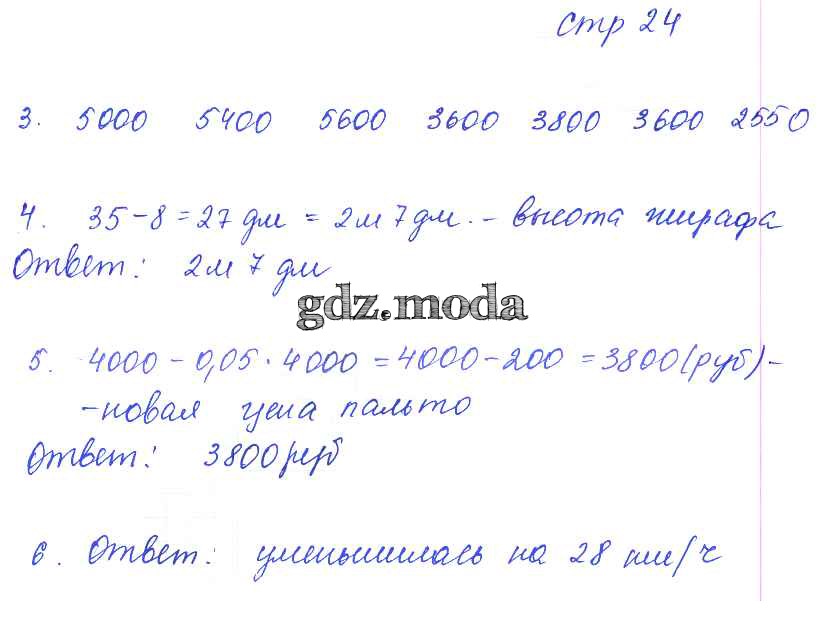 стр 24
3. 5000 5400 5600 3600 3800 3600 2550
4. 35-8=27 дм = 2м 7дм. - высота жирафа
Ответ: 2м 7 дм
gdz.moda
5. 4000 - 0,05 · 4000 = 4000 - 200 = 3800 (руб) -
- новая цена пальто
Ответ: 3800 руб
6. Ответ: уменьшилась на 28 км/ч